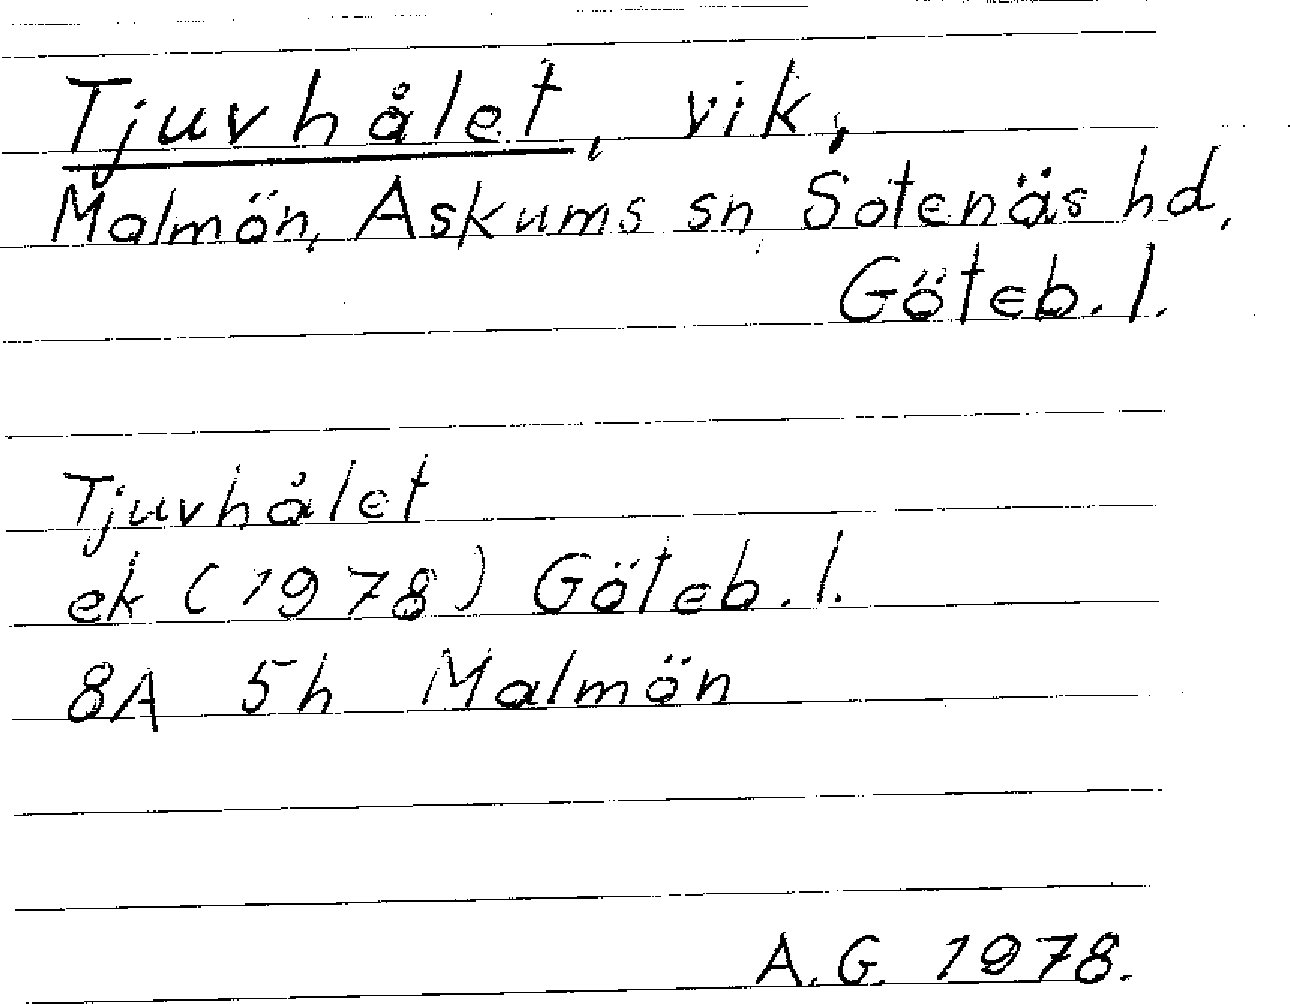 Tjuvhålet, vik,
Malmön, Askums sn, Sotenäs hd,
Göteb. l.
Tjuvhålet
ek (1978) Göteb. l.
8A 5h Malmön
A.G. 1978.